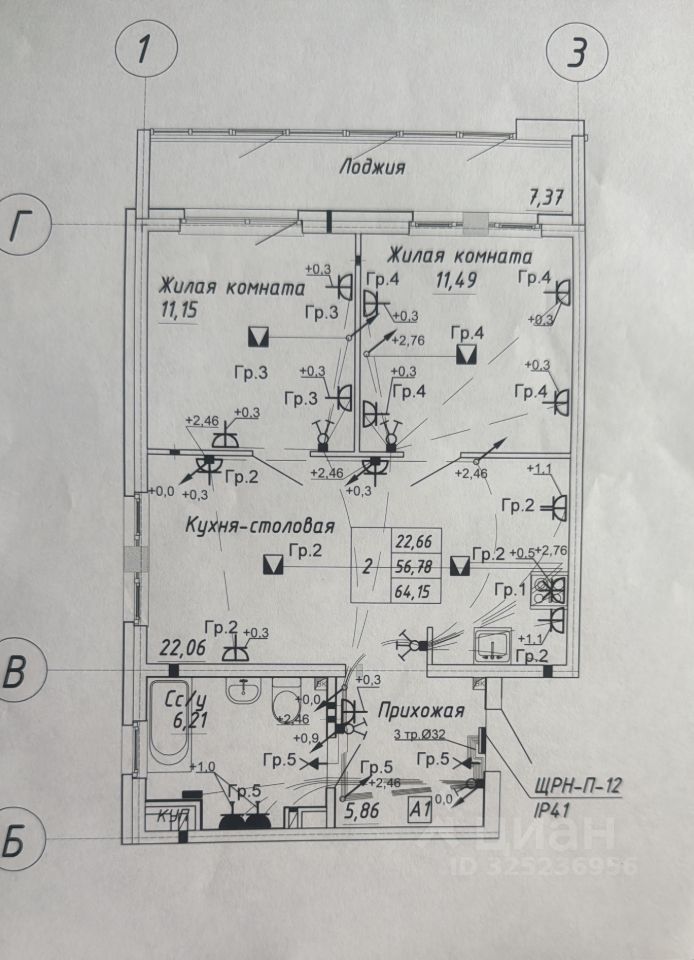 1
3
Лоджия
7,37
Г
Жилая комната
11,49
Жилая комната
11,15
+0,3
Гр.4
Гр.4
Гр.3
+0,3
+0,3
+2,76
Гр.4
Гр.3
+0,3
+0,3
+0,3
Гр.3
Гр.4
Гр.4
+2,46
+0,3
+0,0
+0,3
Гр.2
+2,46
+0,3
+2,46
+1,1
Кухня-столовая
Гр.2
22,66
2
56,78
64,15
Гр.2
Гр.2
+0,5
+2,76
Гр.1
Гр.2
+0,3
22,06
+1,1
Гр.2
В
Сс/у
6,21
ВК
+0,0
+0,3
ВК
+2,46
Прихожая
+0,9
3 тр.Ø32
Гр.5
Гр.5
Гр.5
+1,0
Гр.5
+2,46
0,0
ЩРН-П-12
IP41
КУП
5,86
А1
Б
циан
ID 325236956